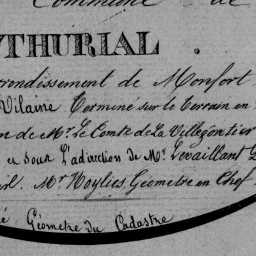 Commune de
THURIAL.
rrondissement de Monfort
Vilaine Terminé sur le terrain en
n de Mr. Le Comte de La Villegontier
e Sous L'adirection de Mr. Levaillant
Mr. Hoylies, Géometre en Chef
Géometre du Cadastre